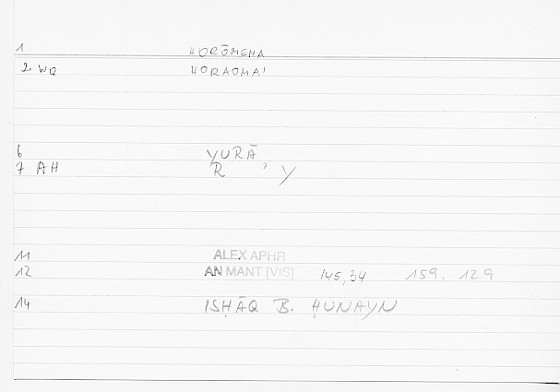 1 HORŌMENA
2 WQ HORAOMAI
6 YURĀ
7 AH R ʾ Y
11 ALEX APHR
12 AN MANT [VIS] 145,34 159. 129
14 ISḤĀQ B. ḤUNAYN